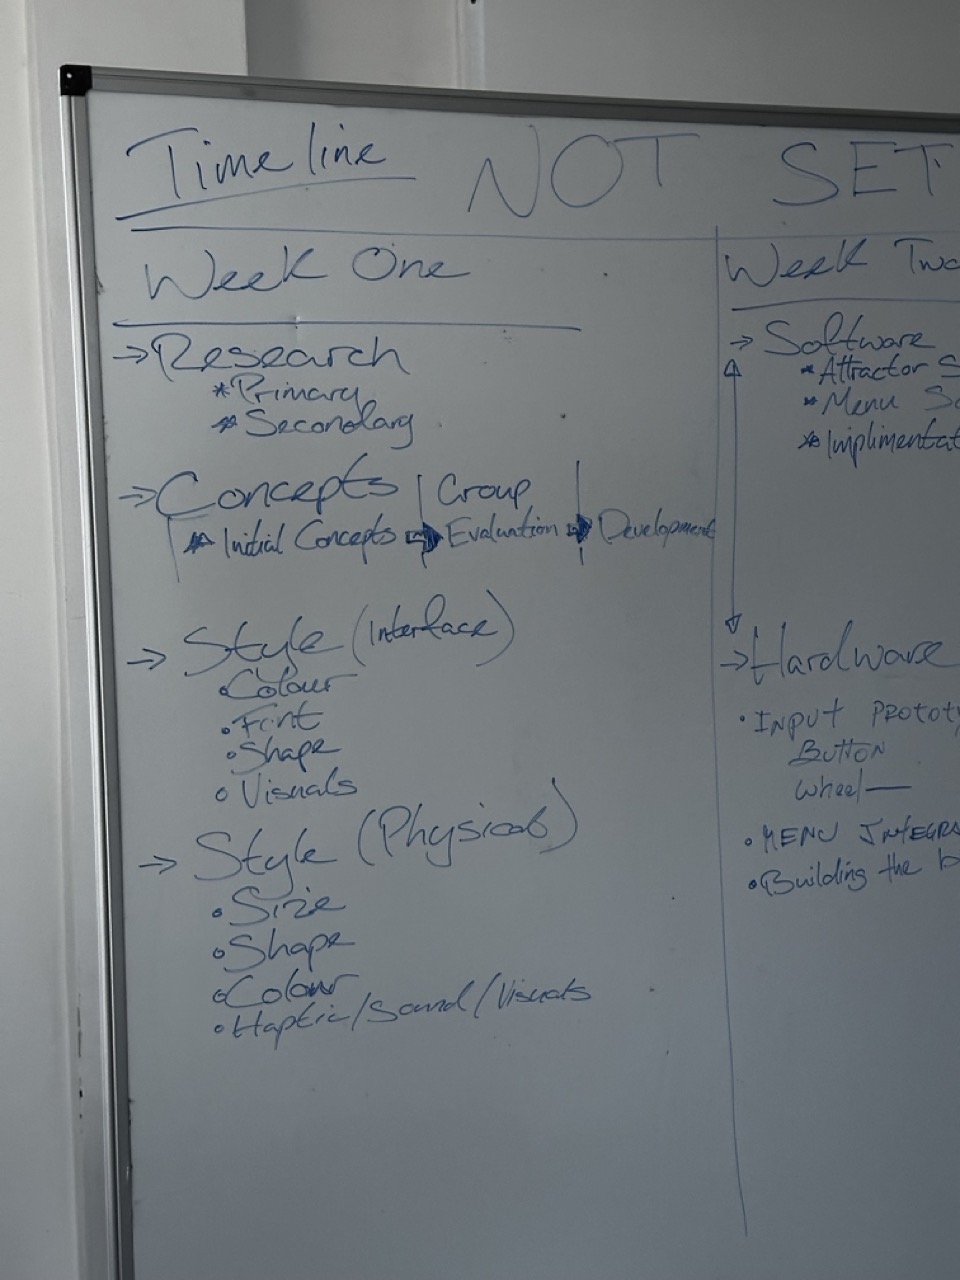 Timeline NOT SET
Week One
→Research
*Primary
*Secondary
→Concepts | Group |
* Initial Concepts → Evaluation → Development
→ Style (Interface)
•Colour
•Font
•Shape
•Visuals
→ Style (Physical)
•Size
•Shape
•Colour
•Haptic/Sound/Visuals
Week Two
→ Software
*Attractor S
*Menu Sc
*Implimentat
→Hardware
•INPUT PROTOTY
BUTTON
Wheel—
•MENU INTEGRA
•Building the b